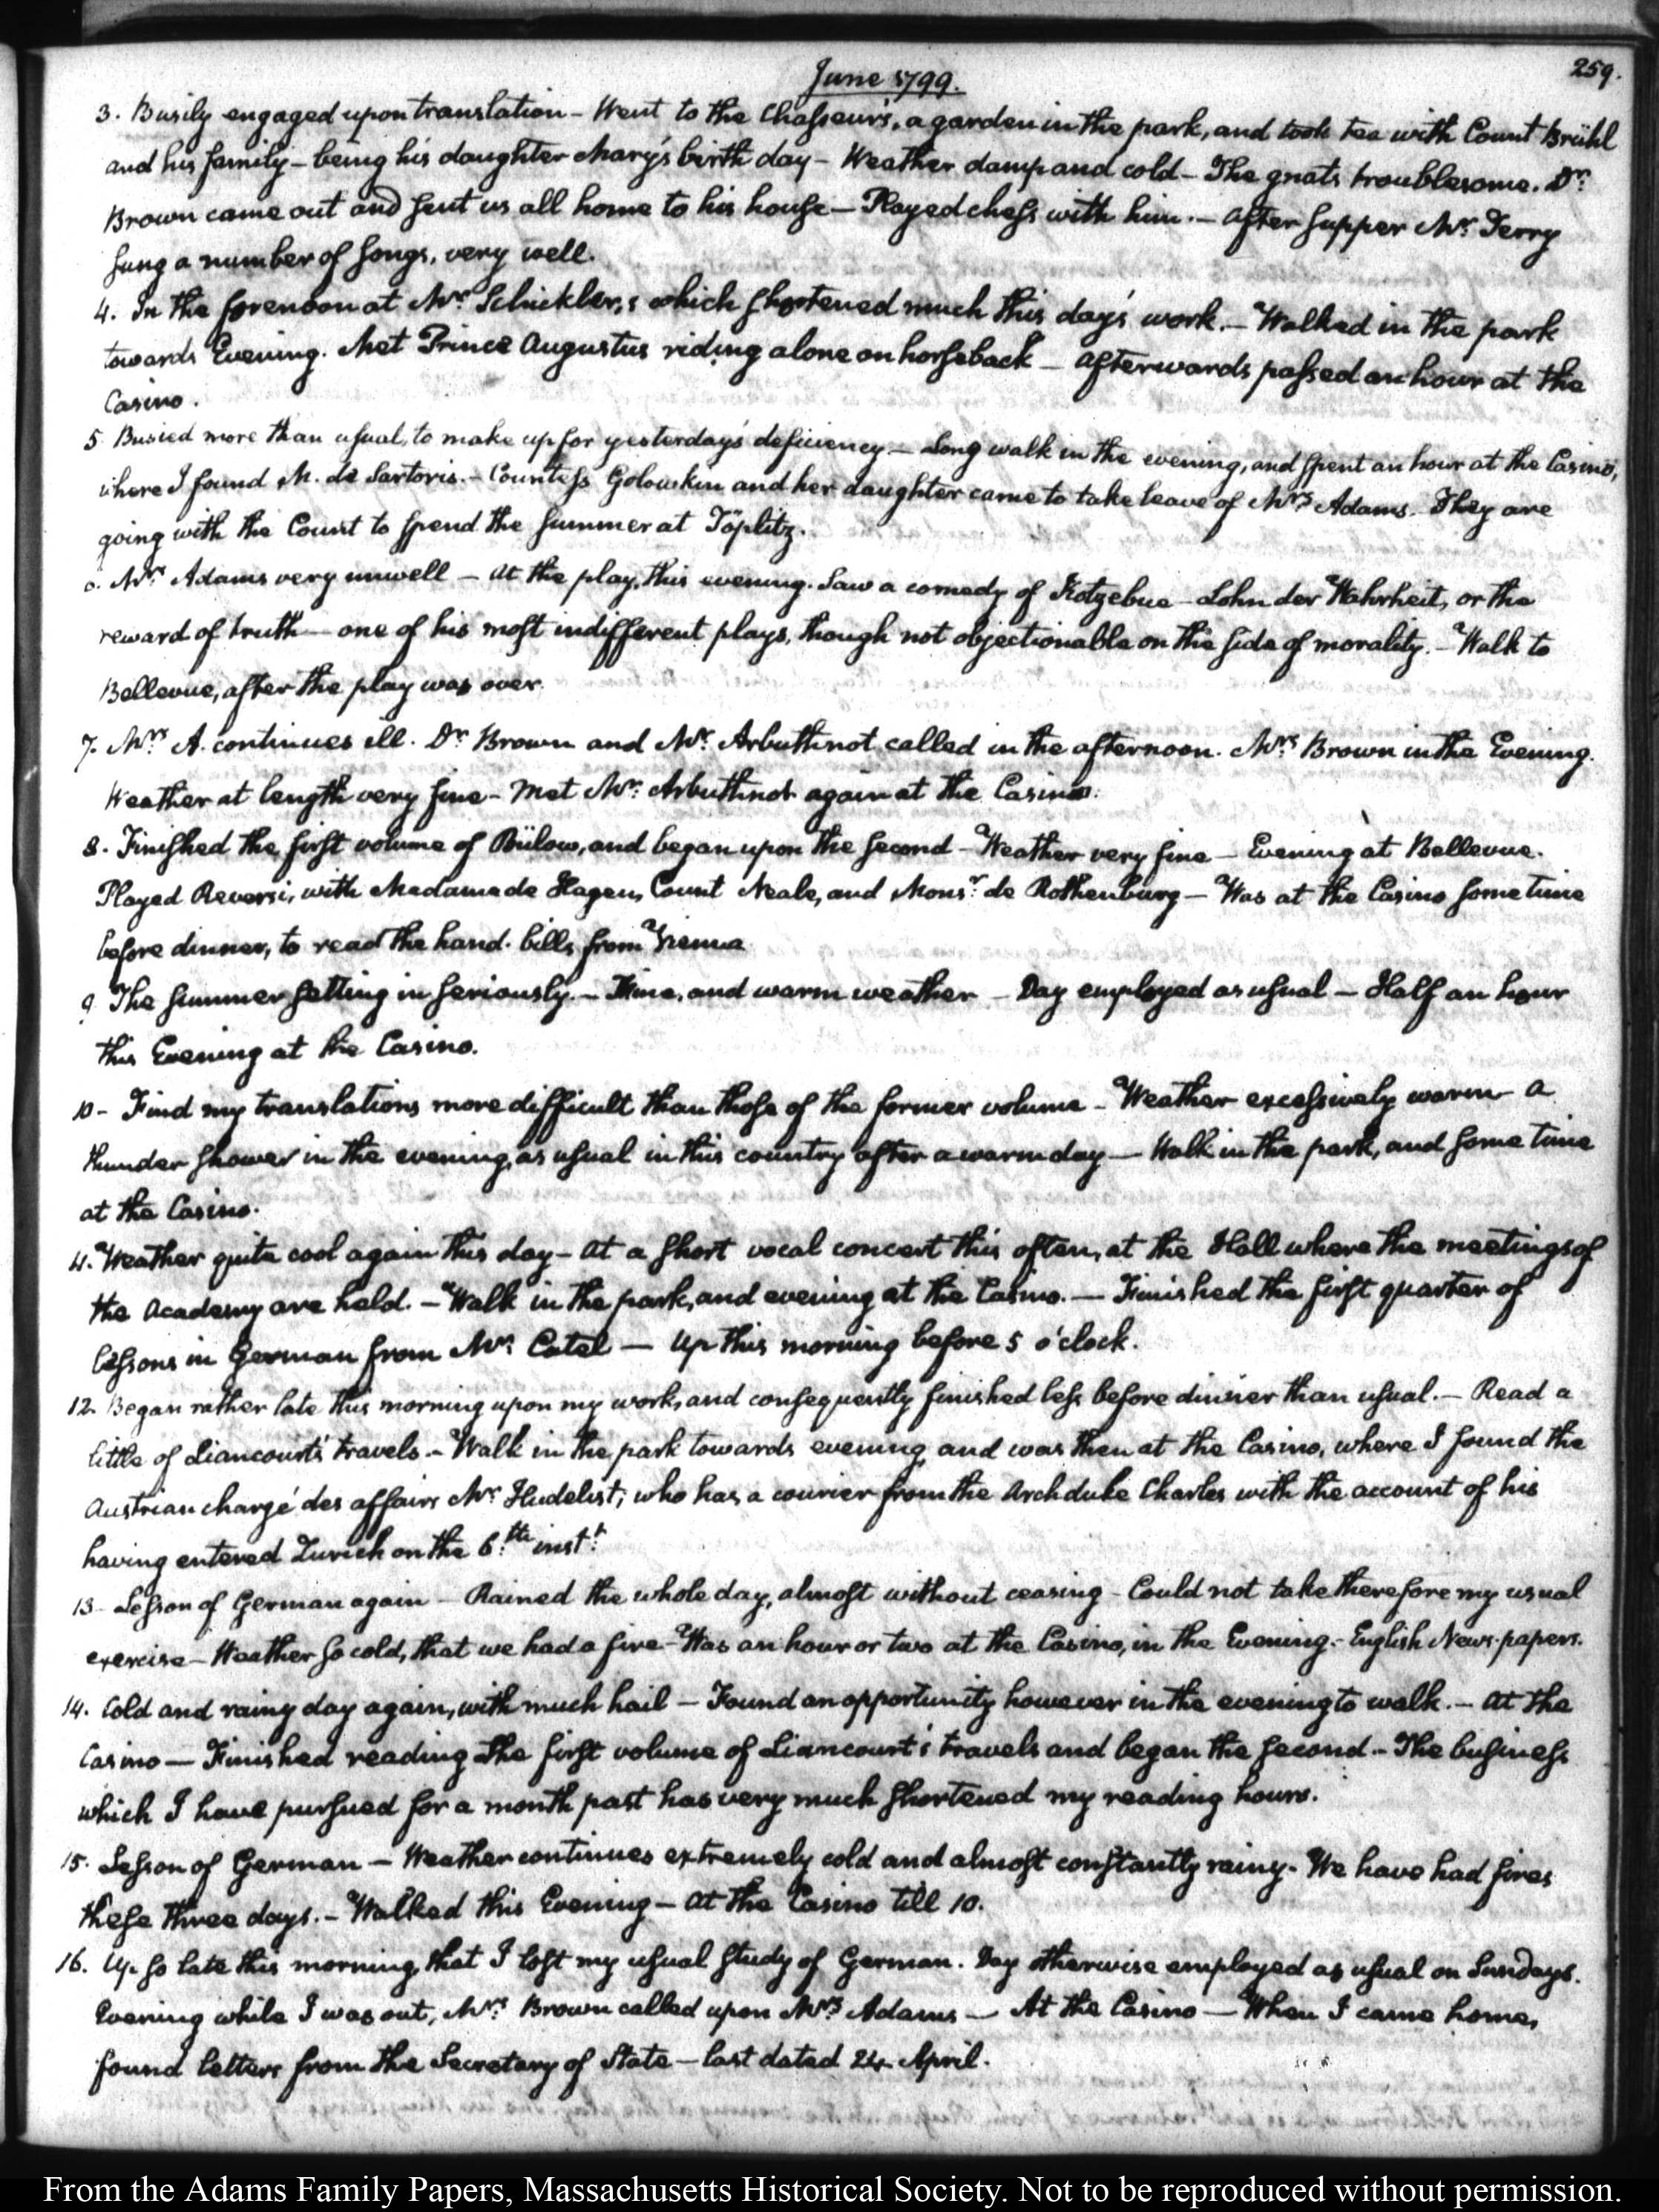 June 1799.
259.
3. Busily engaged upon translation – Went to the Chasseur's, a garden in the park, and took tea with Count Brühl
and his family – being his daughter Mary's birth day – Weather damp and cold – The gnats troublesome. Dr.
Brown came out and sent us all home to his house – Played chess with him. – After supper Mr. Terry
sung a number of songs, very well.
4. In the forenoon at Mr. Schickler's which shortened much this day's work. – Walked in the park
towards Evening. Met Prince Augustus riding alone on horseback – Afterwards passed an hour at the
Casino.
5 Busied more than usual, to make up for yesterday's deficiency – Long walk in the evening, and spent an hour at the Casino,
where I found M. de Sartoris. – Countess Golowkin and her daughter came to take leave of Mrs. Adams. They are
going with the Count to spend the summer at Töplitz.
6. Mrs. Adams very unwell – At the play, this evening. Saw a comedy of Kotzebue – Lohn der Wahrheit, or the
reward of truth – one of his most indifferent plays, though not objectionable on the side of morality. – Walk to
Bellevue, after the play was over.
7. Mrs. A. continues ill. Dr. Brown and Mr. Arbuthnot called in the afternoon. Mrs. Brown in the Evening.
Weather at length very fine – Met Mr. Arbuthnot again at the Casino.
8. Finished the first volume of Bülow, and began upon the second – Weather very fine – Evening at Bellevue.
Played Reversi, with Madame de Hagen, Count Neale, and Monsr. de Rothenburg – Was at the Casino some time
before dinner, to read the hand-bills from Vienna
9 The summer setting in seriously. – Fine, and warm weather – Day employed as usual – Half an hour
this Evening at the Casino.
10 – Find my translations more difficult than those of the former volume – Weather excessively warm – A
thunder shower in the evening, as usual in this country after a warm day – Walk in the park, and some time
at the Casino.
11. Weather quite cool again this day – At a short vocal concert this aftern, at the Hall where the meetings of
the Academy are held. – Walk in the park, and evening at the Casino. – Finished the first quarter of
lessons in German from Mr. Catel – Up this morning before 5 o'clock.
12. Began rather late this morning upon my work, and consequently finished less before dinner than usual. – Read a
little of Liancourt's travels – Walk in the park towards evening, and was then at the Casino, where I found the
Austrian chargé des affairs Mr. Hudelist; who has a courier from the Archduke Charles with the account of his
having entered Zurich on the 6.th inst.t
13 – Lesson of German again – Rained the whole day, almost without ceasing – Could not take therefore my usual
exercise – Weather so cold, that we had a fire – Was an hour or two at the Casino, in the Evening. – English News-papers.
14. Cold and rainy day again, with much hail – Found an opportunity however in the evening to walk. – At the
Casino – Finished reading the first volume of Liancourt's travels and began the second – The business
which I have pursued for a month past has very much shortened my reading hours.
15. Lesson of German – Weather continues extremely cold and almost constantly rainy – We have had fires
these three days. – Walked this Evening – At the Casino till 10.
16. Up so late this morning, that I lost my usual study of German. Day otherwise employed as usual on Sundays.
Evening while I was out, Mrs. Brown called upon Mrs. Adams – At the Casino – When I came home,
found letters from the Secretary of State – last dated 24 April.
From the Adams Family Papers, Massachusetts Historical Society. Not to be reproduced without permission.